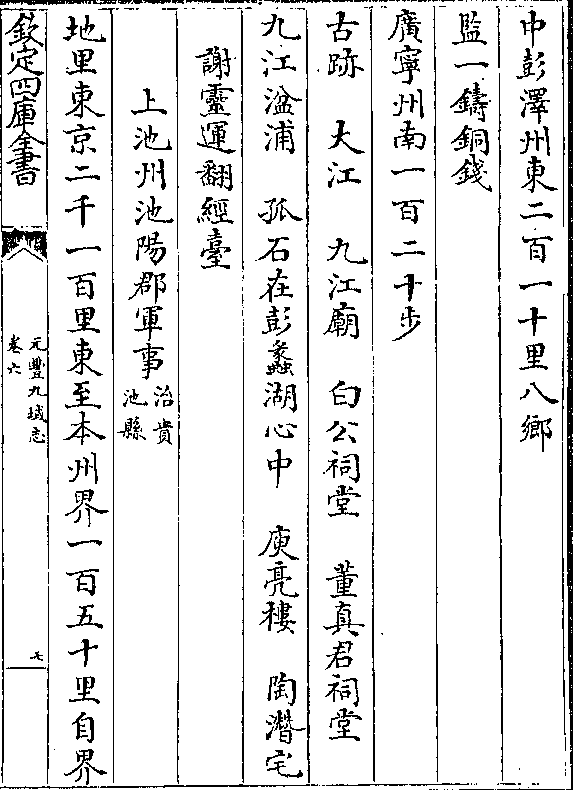 中彭澤州東二百一十里八鄉
監一鑄銅錢
廣寧州南一百二十步
古跡 大江 九江廟 白公祠堂 董真君祠堂
九江湓浦 孤石在彭蠡湖心中 庾亮樓 陶潛宅
謝靈運翻經臺
上池州池陽郡軍事治貴池縣
地里東京二千一百里東至本州界一百五十里自界
欽定四庫全書
元豐九域志
卷六
七